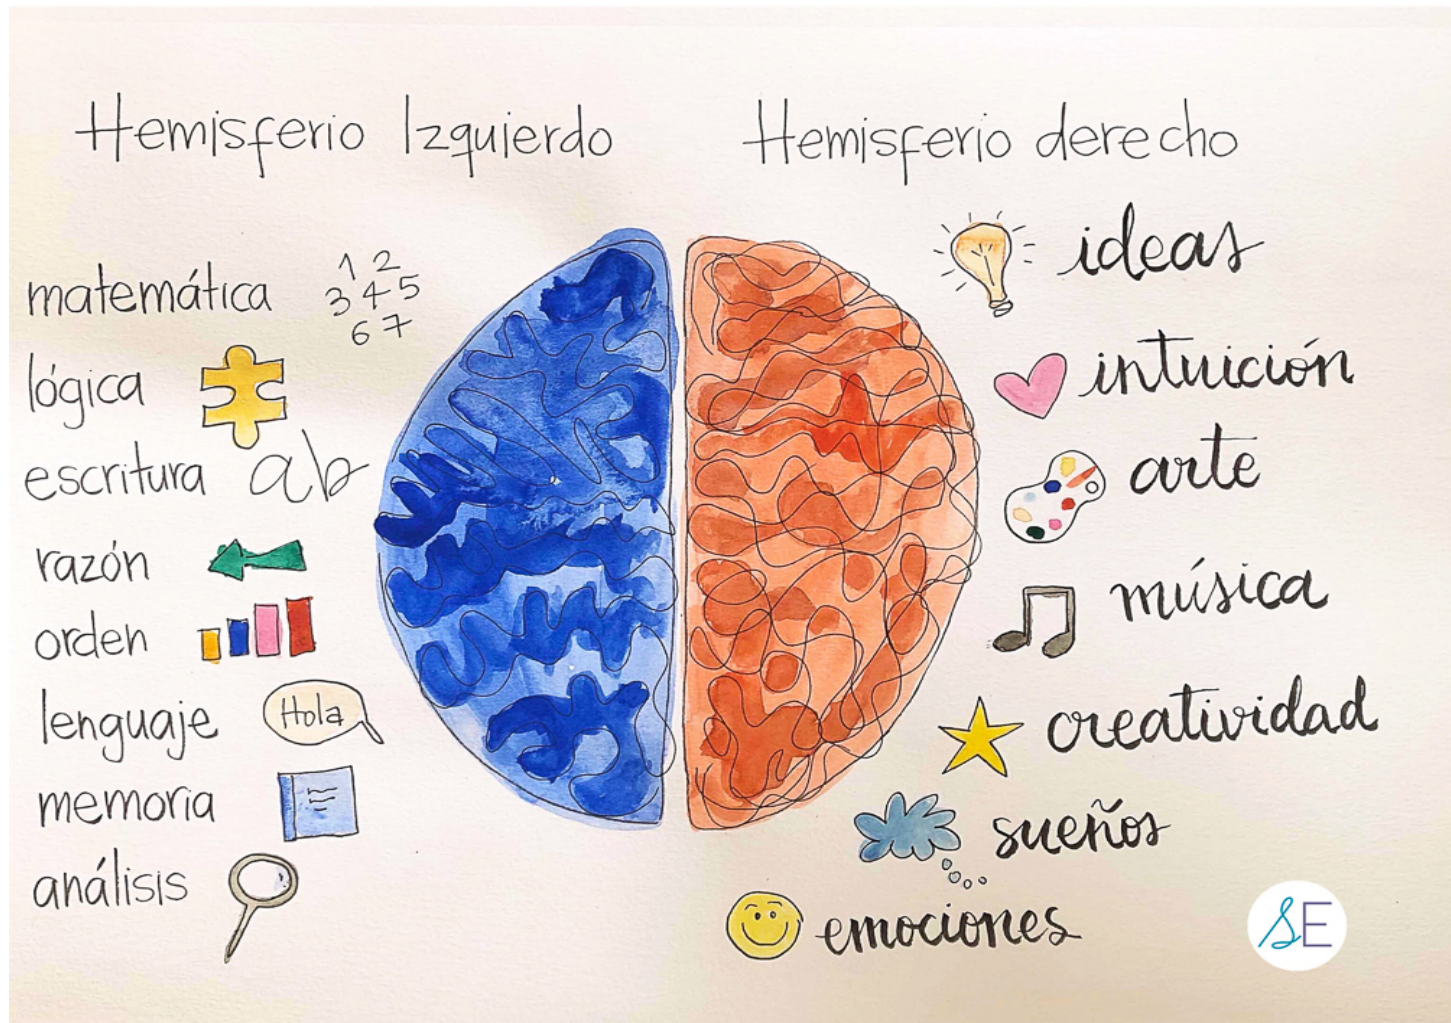 Hemisferio Izquierdo
matemática 1 2
3 4 5
6 7
lógica
escritura ab
razón
orden
lenguaje Hola
memoria
análisis
Hemisferio derecho
ideas
intuición
arte
música
creatividad
sueños
emociones
SE